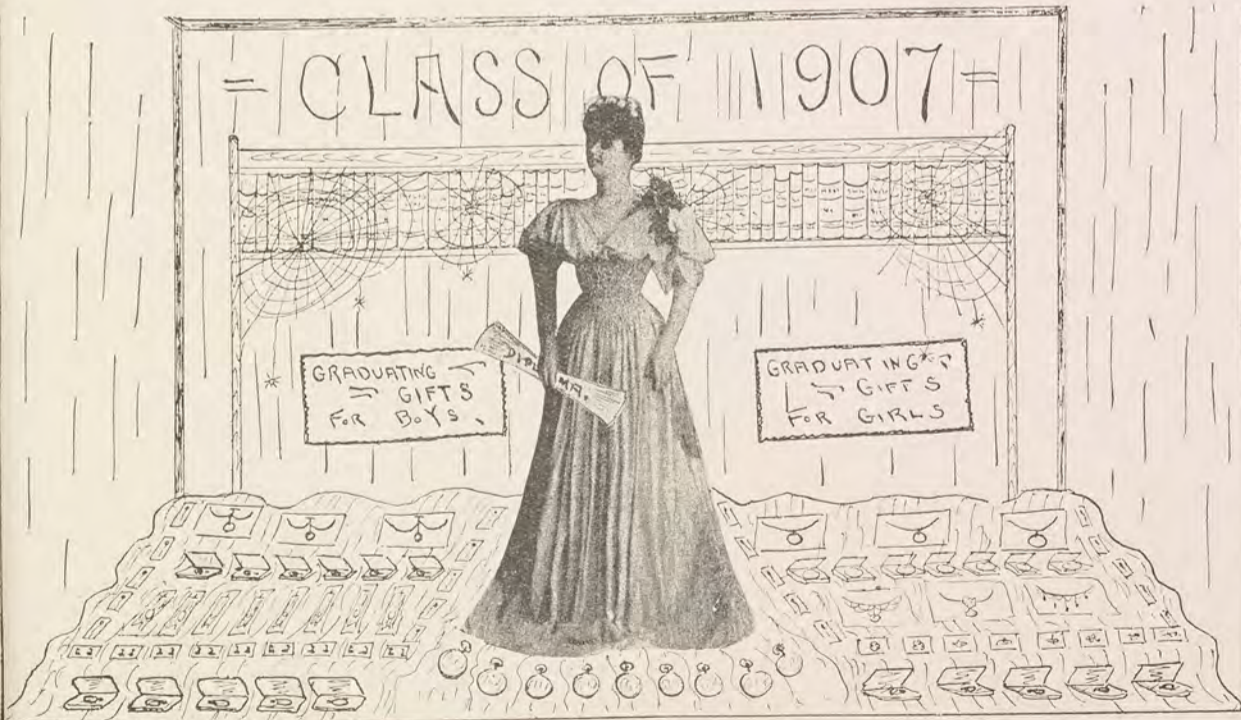 = CLASS OF 1907 =
GRADUATING
GIFTS
FOR BOYS
DIPLOMA.
GRADUATING
GIFTS
FOR GIRLS